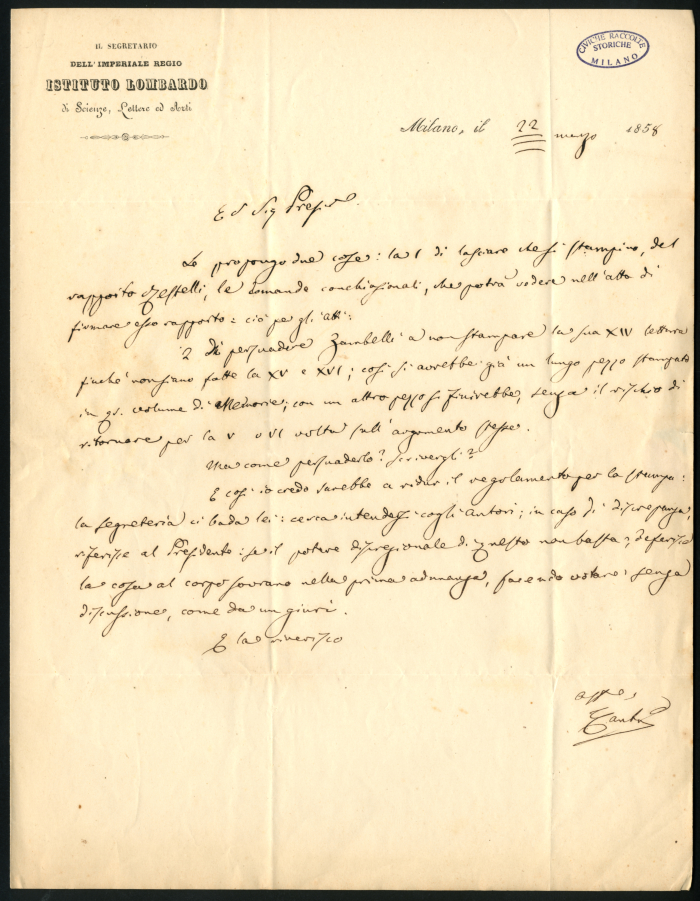 IL SEGRETARIO
DELL'IMPERIALE REGIO
ISTITUTO LOMBARDO
di Scienze, Lettere ed Arti
CIVICHE RACCOLTE
STORICHE
MILANO
Milano, il 22 marzo 1858
Sig Presid
Le propongo due cose: la 1 di lasciare che si stampino, del
rapporto, le domande conchiusionali, che potrà vedere nell'atto di
firmare esso rapporto: ciò pe gli atti:
2 Di persuadere Zambelli a non stampare la sua XIV lettura
finché non siano fatte la XV e XVI; così si avrebbe già un lungo pezzo stampato
in qs. volume di Memorie; con un altro pezzo si finirebbe, senza il rischio di
ritornare per la V o VI volta sull'argomento stesso.
Ma come persuaderlo? scrivergli?
E così io credo sarebbe a ridur il regolamento per la stampa:
la segreteria ci bada lei: cerca intendersi cogli autori; in caso di discrepanza
riferisse al Presidente: se il potere discrezionale di questo non basta, deferisce
la cosa al corpo sovrano nella prima adunanza, facendo votare senza
discussione, come da un giurì.
E la riverisco
C Cantù